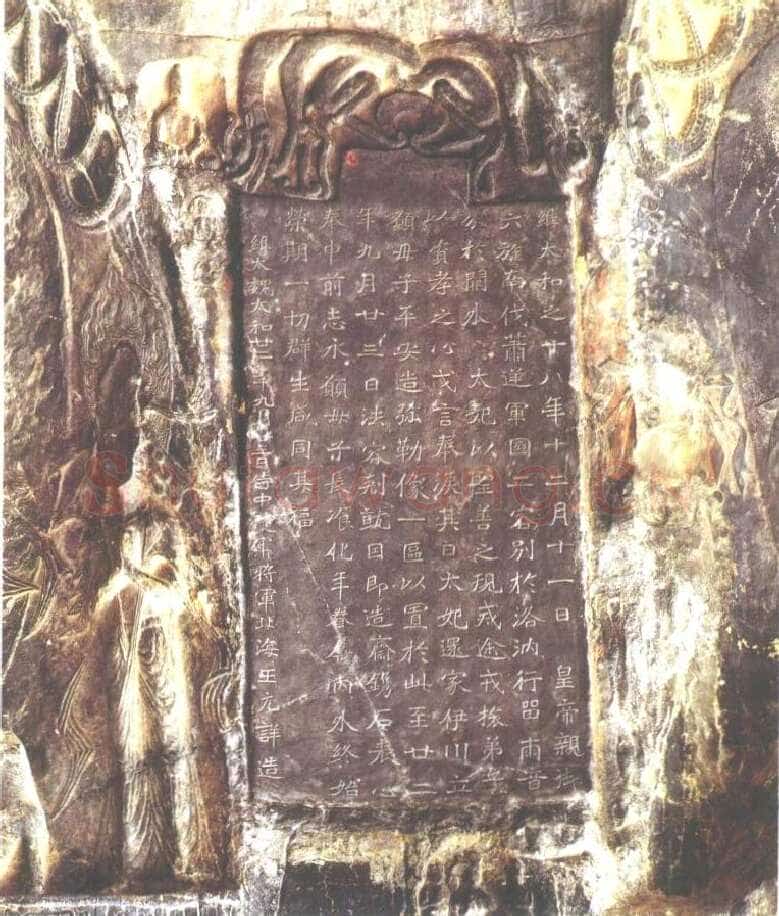 維太和之十八年十二月十一日皇帝親御
六旌南伐蕭逆軍國二容別於洛汭行留兩音
分於闕外太妃以聖善之規戒途戎旅弟子
以資孝之心戈言奉淚其日太妃還家伊川立
願母子平安造彌勒像一區以置於此至廿二
年九月廿三日法容刻就因即造齋鐫石表心
奉申前志永願母子長瘳化年眷屬內外終始
榮期一切群生咸同其福
維大魏太和廿二年九月廿三日侍中護軍將軍北海王元詳造